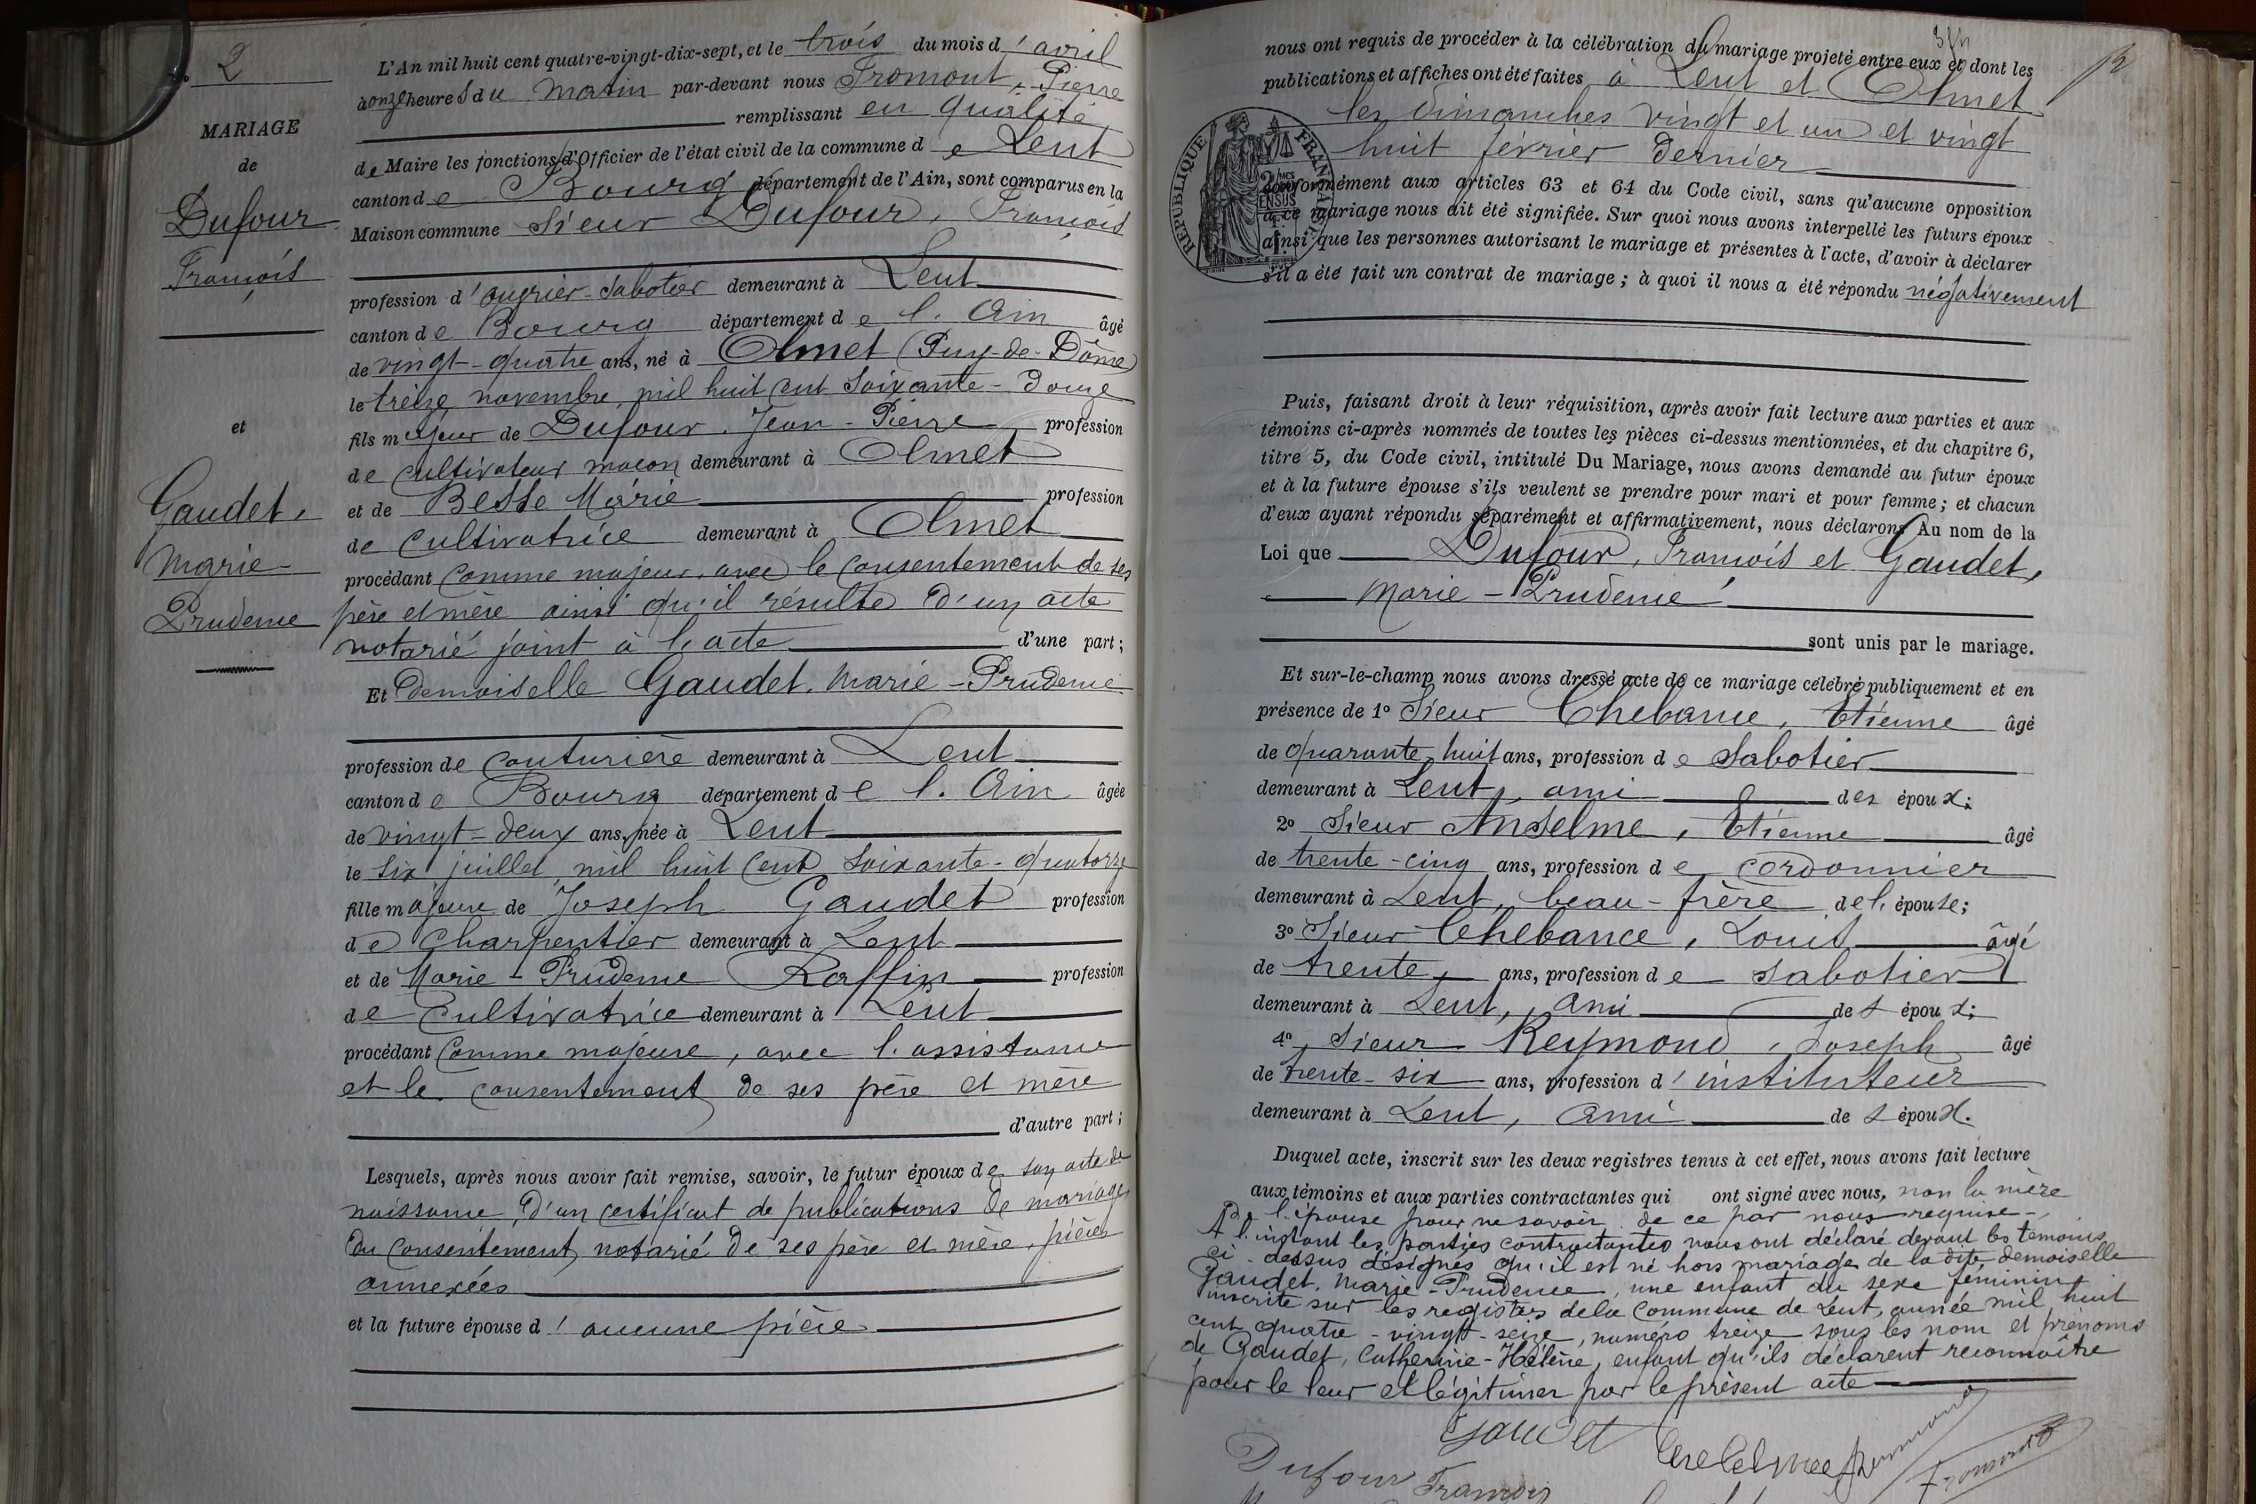 2
MARIAGE
de
Dufour
François
et
Gaudet,
Marie-
Prudence
L'An mil huit cent quatre-vingt-dix-sept, et le trois du mois d'avril
à onze heures du matin par-devant nous Fromont, Pierre
remplissant en qualité
de Maire les fonctions d'Officier de l'état civil de la commune de Lent
canton de Bourg département de l'Ain, sont comparus en la
Maison commune Sieur Dufour, François
profession d'ouvrier-sabotier demeurant à Lent
canton de Bourg département de l'Ain âgé
de vingt-quatre ans, né à Olmet (Puy-de-Dôme)
le treize novembre, mil huit cent soixante-douze
fils majeur de Dufour, Jean-Pierre profession
de cultivateur maçon demeurant à Olmet
et de Besse Marie profession
de cultivatrice demeurant à Olmet
procédant comme majeur, avec le consentement de ses
père et mère ainsi qu'il résulte d'un acte
notarié joint à l'acte d'une part;
Et demoiselle Gaudet, Marie-Prudence
profession de couturière demeurant à Lent
canton de Bourg département de l'Ain âgée
de vingt-deux ans, née à Lent
le six juillet, mil huit cent soixante-quatorze
fille majeure de Joseph Gaudet profession
de charpentier demeurant à Lent
et de Marie-Prudence Raffin profession
de cultivatrice demeurant à Lent
procédant comme majeure, avec l'assistance
et le consentement de ses père et mère
d'autre part;
Lesquels, après nous avoir fait remise, savoir, le futur époux de son acte de
naissance, d'un certificat de publications de mariage,
du consentement notarié de ses père et mère, pièces
annexées
et la future épouse d'aucune pièce
nous ont requis de procéder à la célébration du mariage projeté entre eux et dont les
publications et affiches ont été faites à Lent et Olmet
les dimanches vingt et un et vingt
huit février dernier
conformément aux articles 63 et 64 du Code civil, sans qu'aucune opposition
à ce mariage nous ait été signifiée. Sur quoi nous avons interpellé les futurs époux
ainsi que les personnes autorisant le mariage et présentes à l'acte, d'avoir à déclarer
s'il a été fait un contrat de mariage; à quoi il nous a été répondu négativement
RÉPUBLIQUE FRANÇAISE
Puis, faisant droit à leur réquisition, après avoir fait lecture aux parties et aux
témoins ci-après nommés de toutes les pièces ci-dessus mentionnées, et du chapitre 6,
titre 5, du Code civil, intitulé Du Mariage, nous avons demandé au futur époux
et à la future épouse s'ils veulent se prendre pour mari et pour femme; et chacun
d'eux ayant répondu séparément et affirmativement, nous déclarons Au nom de la
Loi que Dufour, François et Gaudet,
Marie-Prudence
sont unis par le mariage.
Et sur-le-champ nous avons dressé acte de ce mariage célébré publiquement et en
présence de 1° Sieur Chebance, Etienne âgé
de quarante-huit ans, profession de sabotier
demeurant à Lent, ami des époux;
2° Sieur Anselme, Etienne âgé
de trente-cinq ans, profession de cordonnier
demeurant à Lent, beau-frère de l'épouse;
3° Sieur Chebance, Louis âgé
de trente, ans, profession de sabotier
demeurant à Lent, ami des époux;
4°, Sieur Reymond, Joseph âgé
de trente-six ans, profession d'instituteur
demeurant à Lent, ami des époux.
Duquel acte, inscrit sur les deux registres tenus à cet effet, nous avons fait lecture
aux témoins et aux parties contractantes qui ont signé avec nous, non la mère
de l'épouse pour ne savoir de ce par nous requise
A l'instant les parties contractantes nous ont déclaré devant les témoins
ci-dessus désignés qu'il est né hors mariage de la dite demoiselle
Gaudet, Marie-Prudence, une enfant du sexe féminin
inscrite sur les registres de la commune de Lent, année mil huit
cent quatre-vingt-seize, numéro treize sous les nom et prénoms
de Gaudet, Catherine-Hélène, enfant qu'ils déclarent reconnaître
pour le leur et légitimer par le présent acte
Gaudet
Dufour François